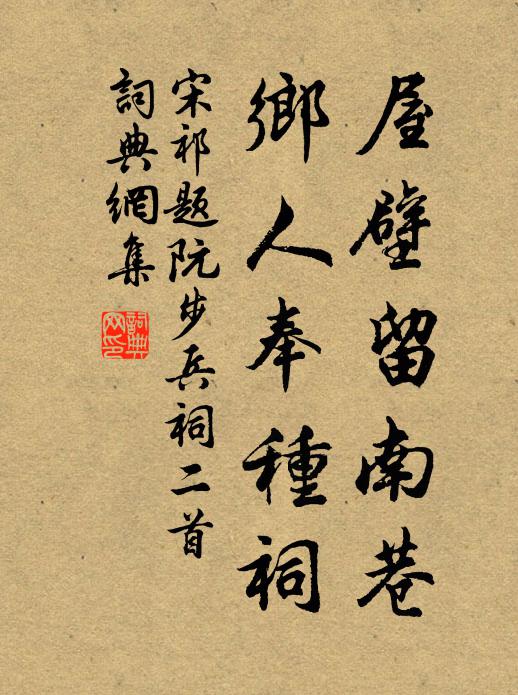 屋壁留南巷
鄉人奉種祠
宋祁题阮步兵祠二首
詞典網集